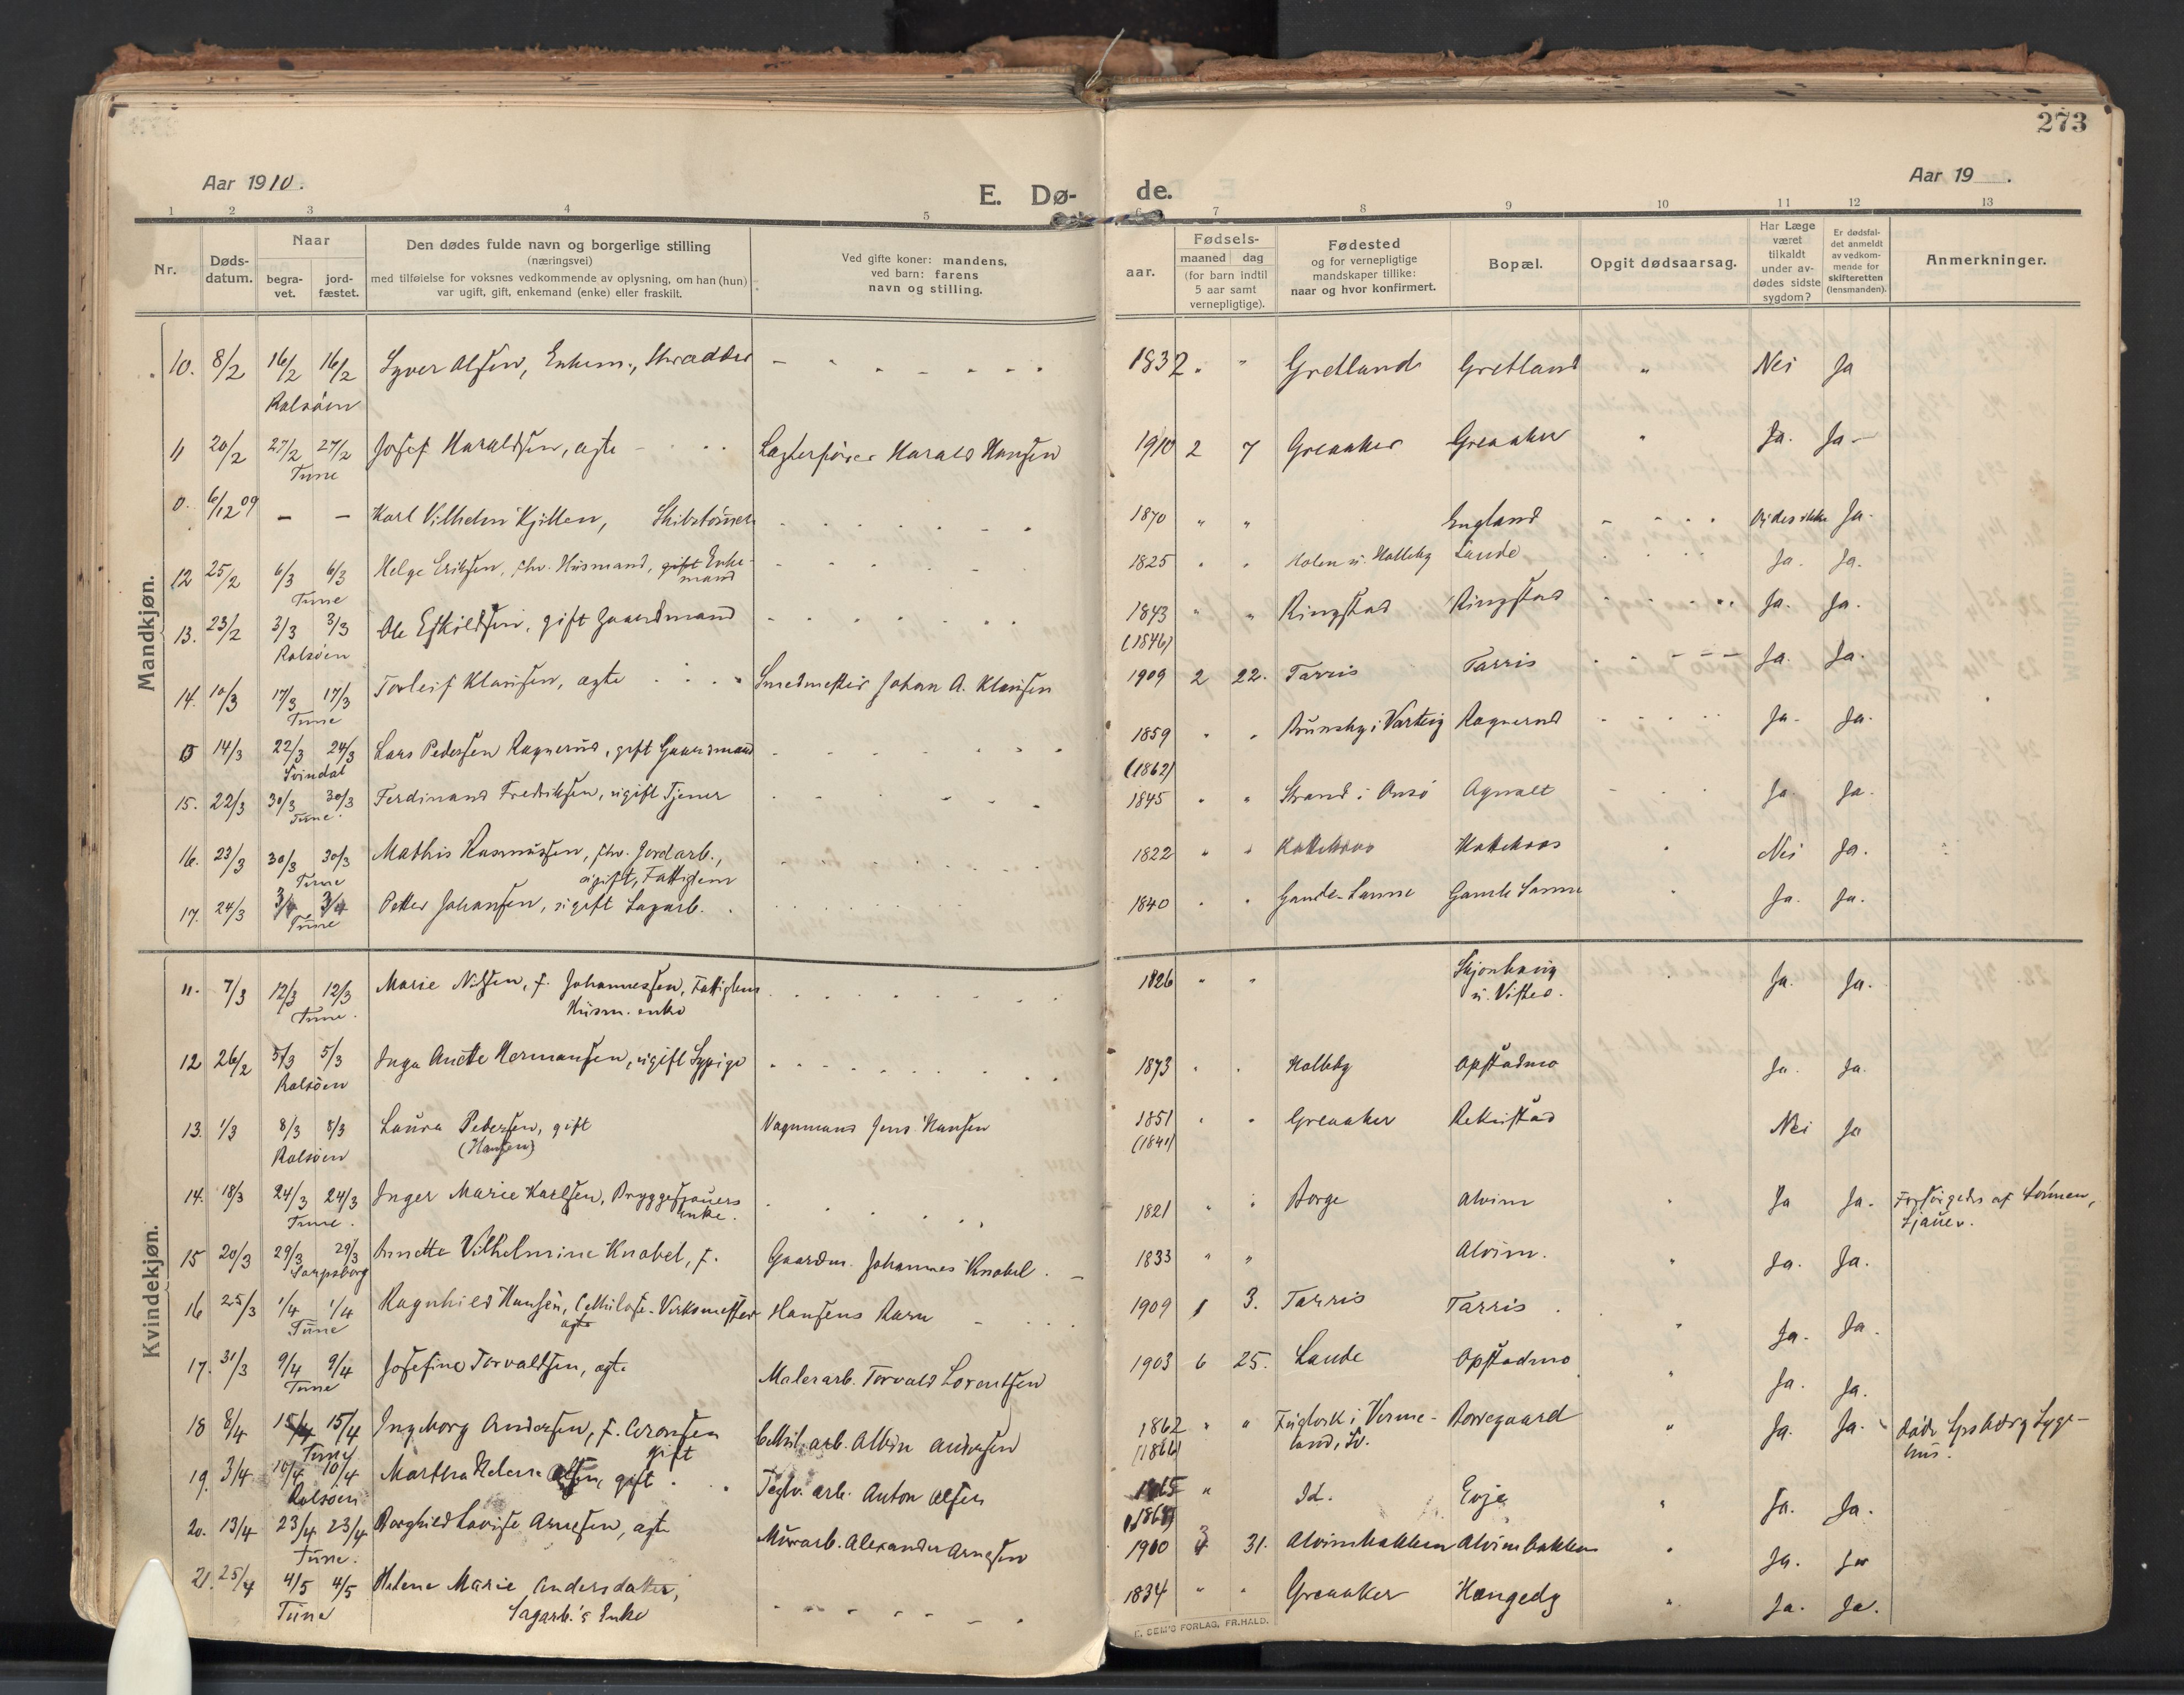 273
Aar 1910.
E. Dø-
de.
Aar 19 .
1 2 3 4 5 6 7 8 9 10 11 12 13
Nr.
Døds-
datum.
Naar
begra-
vet.
jord-
fæstet.
Den dødes fulde navn og borgerlige stilling
(næringsvei)
med tilføielse for voksnes vedkommende av oplysning, om han (hun)
var ugift, gift, enkemand (enke) eller fraskilt.
Ved gifte koner: mandens,
ved barn: farens
navn og stilling.
aar.
Fødsels-
maaned dag
(for barn indtil
5 aar samt
vernepligtige).
Fødested
og for vernepligtige
mandskaper tillike:
naar og hvor konfirmert.
Bopæl.
Opgit dødsaarsag.
Har Læge
været
tilkaldt
under av-
dødes sidste
sygdom?
Er dødsfal-
det anmeldt
av vedkom-
mende for
skifteretten
(lensmanden).
Anmerkninger.
Mandkjøn.
10. 8/2 16/2 16/2 Syver Olsen, Enkem., Skrædder - - - - - - 1832 " " Gretland Gretland " Nei Ja
Rolsöen
11 20/2 27/2 27/2 Josef Haraldsen, ægte - - - Lægterfører Harald Hansen 1910 2 7 Greaaker Greaaker " Ja. Ja -
Tune
0. 6/12 09 - - Karl Vilhelm Kjillen, Skibstömmer 1870 " " England Vides ikke Ja.
12 25/2 6/3 6/3 Helge Eriksen, fhv. Husmand, gift Enke- 1825 " " Holen u. Halleby Lande Ja. Ja.
mand
Tune
13. 23/2 3/3 3/3 Ole Eskildsen, gift Gaardmand 1843 " " Ringstad Ringstad Ja. Ja.
Rolsöen (1846)
14. 10/3 17/3 17/3 Torleif Klausen, ægte Smedmester Johan A. Klausen 1909 2 22. Tarris Tarris Ja. Ja.
Tune
0 14/3 22/3 24/3 Lars Pedersen Ragnerud, gift Gaardmand 1859 " " Brunsby i Varteig Ragnerud Ja. Ja.
Svindal (1862)
15. 22/3 30/3 30/3 Ferdinand Fredriksen, ugift Tjener 1845 " " Strand i Onsö Agnalt Ja. Ja.
Tune.
16. 23/3 30/3 30/3 Mathis Rasmussen, fhv. Jordarb., 1822 " " Katteboos Katteboos Nei Ja.
Tune ugift, Fattiglem
17. 24/3 3/4 3/4 Petter Johansen, ugift Sagarb. 1840 " " Gamle-Sanne Gamle Sanne Ja. Ja.
Tune
Kvindekjøn.
11. 7/3 12/3 12/3 Marie Nilsen, f. Johannessen, Fattiglem 1826 " " Ja. Ja.
Tune. Husm. enke u. Vister.
12 26/2 5/3 5/3 Inga Anette Hermansen, ugift Sypige 1873 " " Halleby Opstadmo Ja. Ja.
Rolsöen
13. 1/3 8/3 8/3 Laura Pedersen, gift Vognmand Jens Hansen 1851 " " Greaaker Rekustad Nei Ja
Rolsöen (Hansen) (1841)
14. 18/3 24/3 24/3 Inger Marie Karlsen, Bryggesjauers 1821 " " Borge Alvim Ja Ja. Forsörgedes af Sönnen,
Tune. enke. Sjauer.
15 20/3 29/3 29/3 Annette Vilhelmine Knobel, f. Gaardm. Johannes Knobel 1833 " " Alvim. Ja. Ja.
Sarpsborg
16 25/3 1/4 1/4 Ragnhild Hansen, Cellulose-Verksmester Hansens Barn 1909 1 3. Tarris Tarris Ja. Ja.
Tune ægte
17. 31/3 9/4 9/4 Josefine Torvaldsen, ægte Malerarb. Torvald Lorentsen 1903 6 25. Lande Opstadmo Ja. Ja.
Tune
18 8/4 15/4 15/4 Ingeborg Andersen, f. Aronsen Cellul. arb. Albin Andersen 1862 " " i Verme- Borregaard " Ja. Ja. döde Spsborg Syge-
Tune gift (1866) land, Sv. hus.
19. 3/4 10/4 10/4 Martha Helene Olsen, gift Teglv. arb. Anton Olsen 1865 " Id. Evje " Ja. Ja.
Rolsöen (1868)
20. 13/4 23/4 23/4 Borghild Lovise Arnesen, ægte Murarb. Alexander Arnesen 1910 3 31. Alvimbakken Alvimbakken " Ja. Ja
Tune.
21. 25/4 4/5 4/5 Helene Marie Andersdatter, 1834 " " Greaaker Hængedy " Ja. Ja.
Tune Sagarb.'s Enke
E. SEM'S FORLAG, FR.HALD.